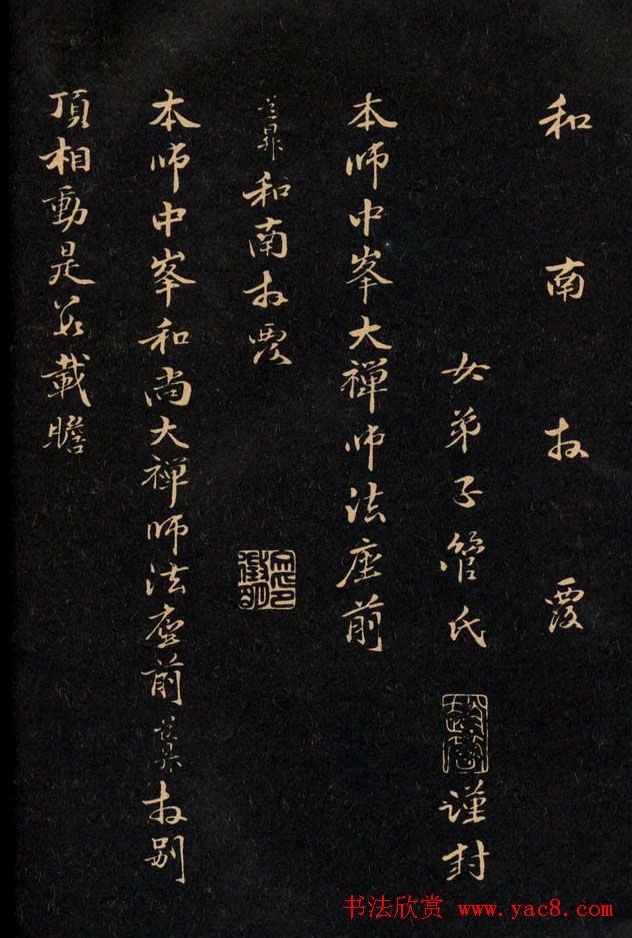 和南拜覆
女弟子管氏
謹封
本師中峯大禪師法座前
道昇和南拜覆
本師中峯和尚大禪師法座前道昇拜別
頂相動是數載瞻
书法欣赏 www.yac8.com